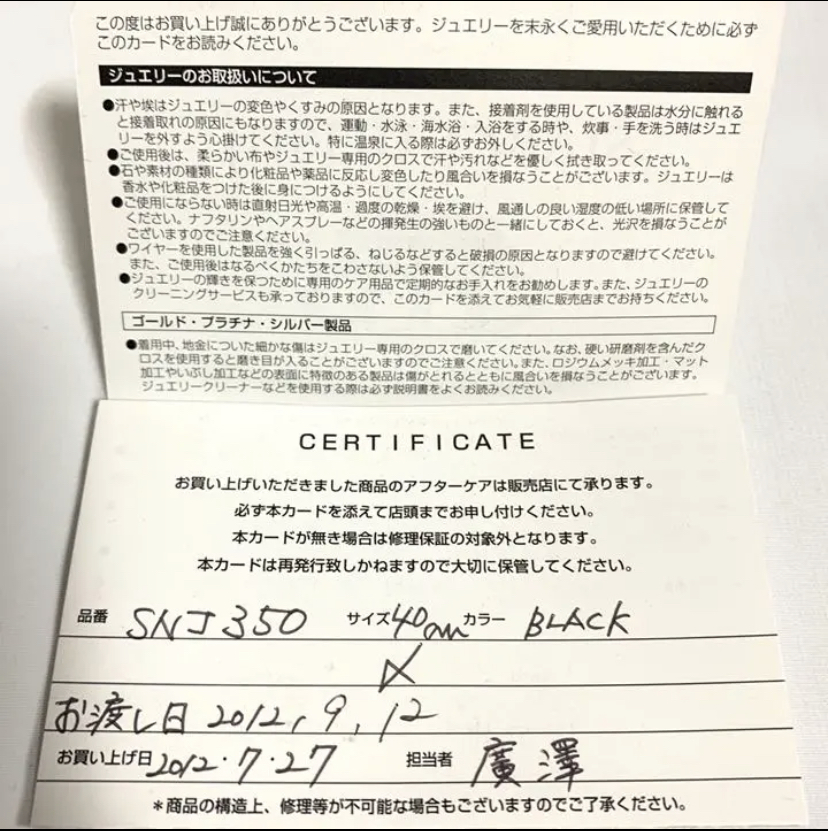 この度はお買い上げ誠にありがとうございます。ジュエリーを末永くご愛用いただくために必ず
このカードをお読みください。
ジュエリーのお取扱いについて
●汗や埃はジュエリーの変色やくすみの原因となります。また、接着剤を使用している製品は水分に触れる
と接着取れの原因にもなりますので、運動・水泳・海水浴・入浴をする時や、炊事・手を洗う時はジュエ
リーを外すよう心掛けてください。特に温泉に入る際は必ずお外しください。
●ご使用後は、柔らかい布やジュエリー専用のクロスで汗や汚れなどを優しく拭き取ってください。
●石や素材の種類により化粧品や薬品に反応し変色したり風合いを損なうことがございます。ジュエリーは
香水や化粧品をつけた後に身につけるようにしてください。
●ご使用にならない時は直射日光や高温・過度の乾燥・埃を避け、風通しの良い湿度の低い場所に保管して
ください。ナフタリンやヘアスプレーなどの揮発生の強いものと一緒にしておくと、光沢を損なうことが
ございますのでご注意ください。
●ワイヤーを使用した製品を強く引っぱる、ねじるなどすると破損の原因となりますので避けてください。
また、ご使用後はなるべくかたちをこわさないよう保管してください。
●ジュエリーの輝きを保つために専用のケア用品で定期的なお手入れをお勧めします。また、ジュエリーの
クリーニングサービスも承っておりますので、このカードを添えてお気軽に販売店までお持ちください。
ゴールド・プラチナ・シルバー製品
●着用中、地金についた細かな傷はジュエリー専用のクロスで磨いてください。なお、硬い研磨剤を含んだク
ロスを使用すると磨き目が入ることがございますのでご注意ください。また、ロジウムメッキ加工・マット
加工やいぶし加工などの表面に特徴のある製品は傷がとれるとともに風合いを損なうことがございます。
ジュエリークリーナーなどを使用する際は必ず説明書をよくお読みください。
CERTIFICATE
お買い上げいただきました商品のアフターケアは販売店にて承ります。
必ず本カードを添えて店頭までお申し付けください。
本カードが無き場合は修理保証の対象外となります。
本カードは再発行致しかねますので大切に保管してください。
品番 SNJ350 サイズ 40cm カラー BLACK
〆
お渡し日 2012, 9, 12
お買い上げ日 2012・7・27 担当者 廣澤
＊商品の構造上、修理等が不可能な場合もございますのでご了承ください。